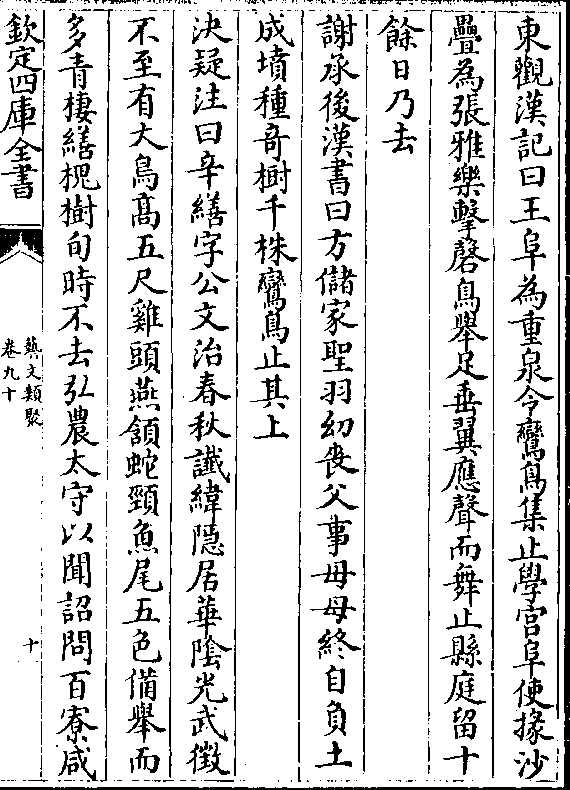 東觀漢記曰王阜為重泉令鸞鳥集止學宫阜使掾沙
疊為張雅樂擊磬鳥舉足垂翼應聲而舞止縣庭留十
餘日乃去
謝承後漢書曰方儲家聖羽幼喪父事母母終自負土
成墳種奇樹千株鸞鳥止其上
決疑注曰辛繕字公文治春秋讖緯隱居華陰光武徴
不至有大鳥髙五尺雞頭燕頷蛇頸魚尾五色備舉而
多青棲繕槐樹旬時不去弘農太守以聞詔問百寮咸
欽定四庫全書
藝文類聚
卷九十
十